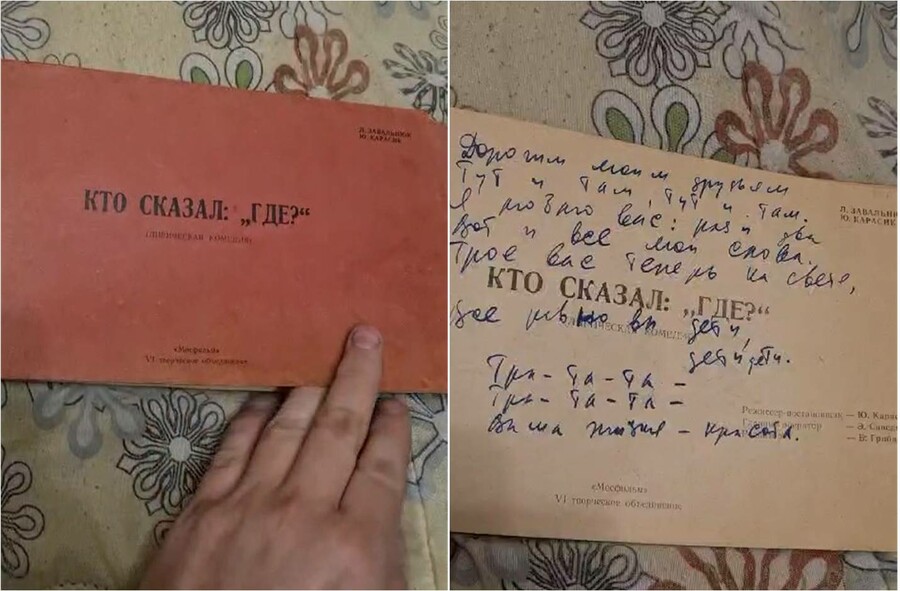 Л. ЗАВАЛЬНЮК
Ю. КАРАСИК
КТО СКАЗАЛ: „ГДЕ?“
(ЛИРИЧЕСКАЯ КОМЕДИЯ)
«Мосфильм»
VI творческое объединение
Дорогим моим друзьям
Тут и там, тут и там.
Я позвал вас: раз и два
Вот и все мои слова.
Трое вас теперь на свете,
Л. ЗАВАЛЬНЮ
Ю. КАРАСИК
КТО СКАЗАЛ: „ГДЕ?“
Все равно вы дети,
КОМЕДИЯ
дети, дети.
Тра-та-та-
Тра-та-та-
Ваша жизнь - красота.
Режиссер-постановщик — Ю. Карас
оператор — Э. Савел
— В. Гриба
«Мосфильм»
VI творческое объединение